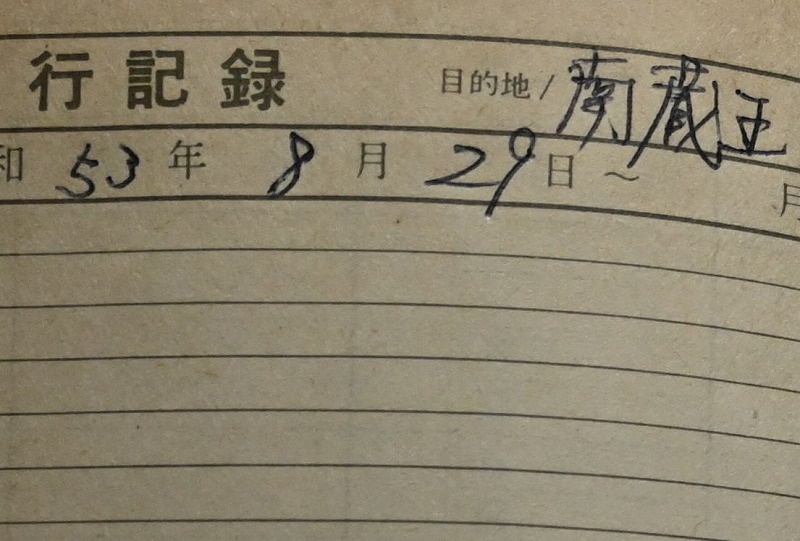 行記録 目的地/南蔵王
和53年8月29日～ 月